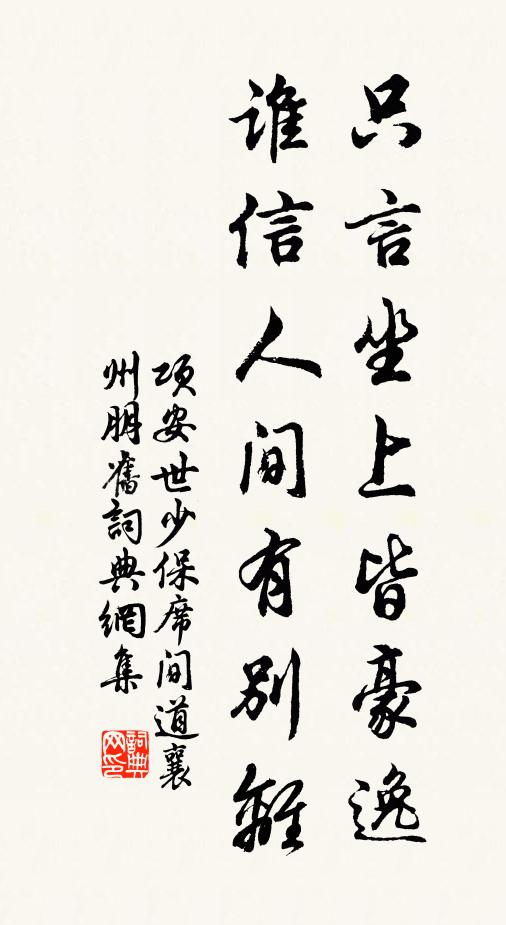 只言坐上皆豪逸
谁信人间有别離
项安世少保席间道襄
州朋舊詞典網集
詞典
网印